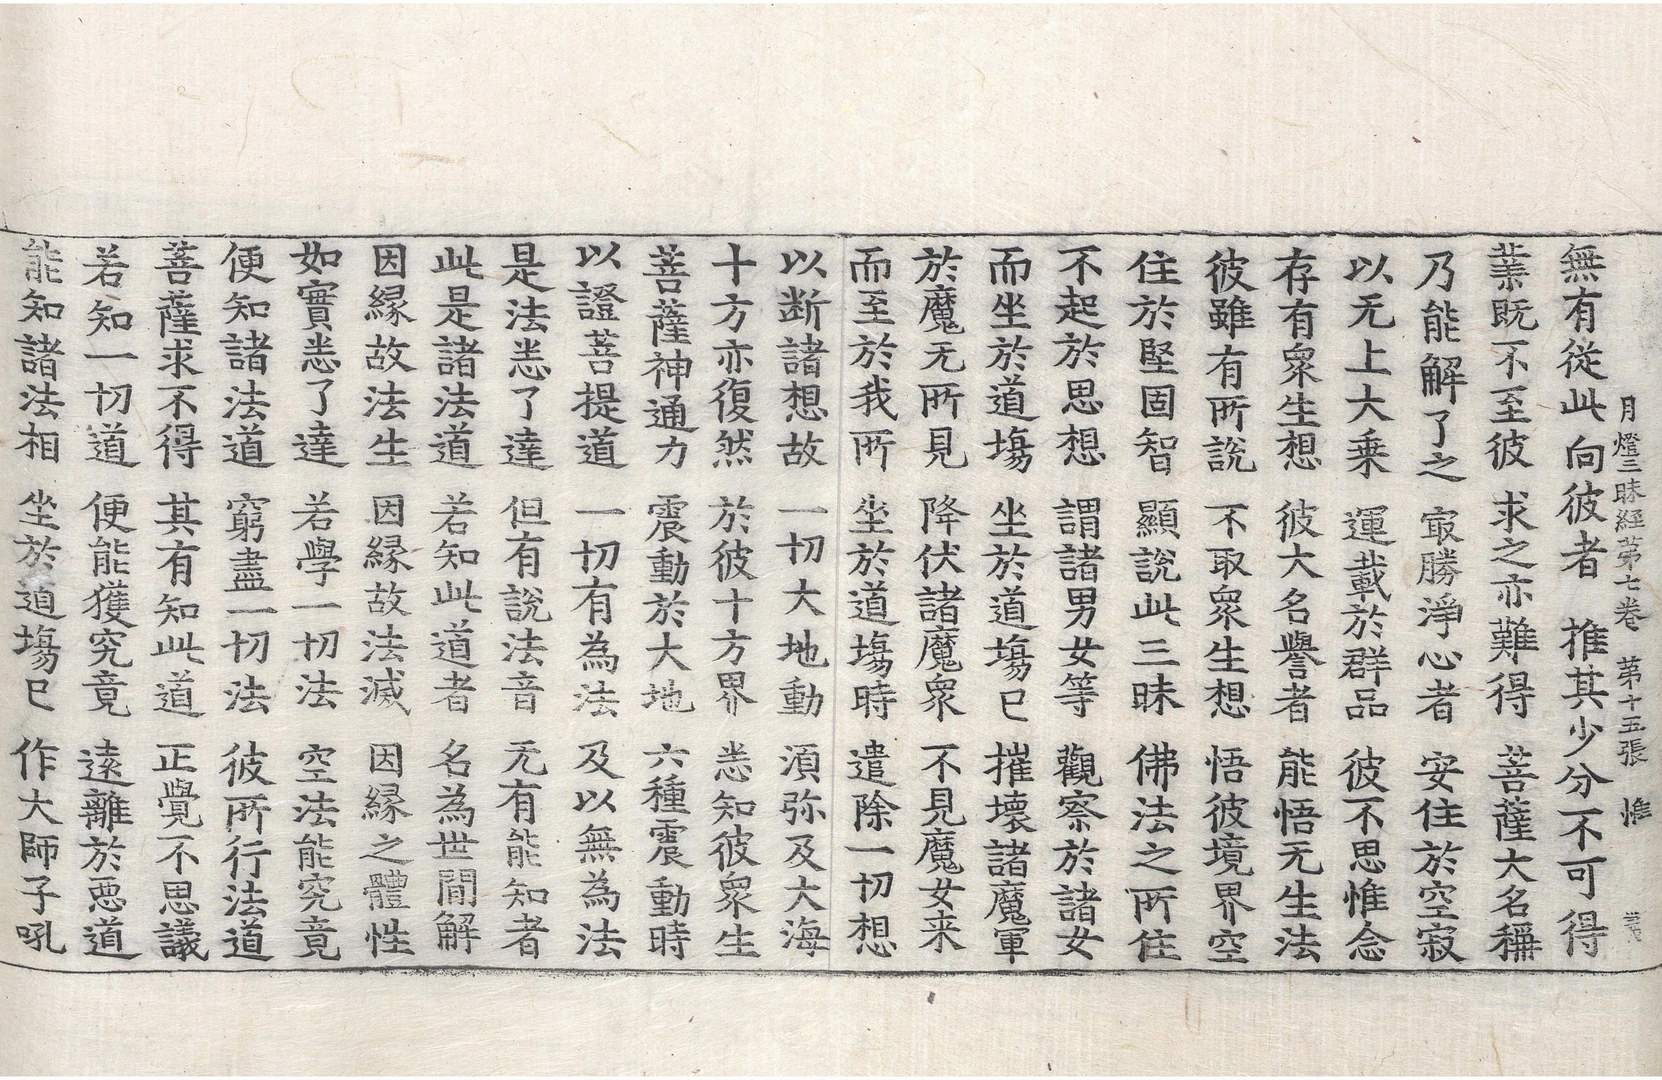 月燈三昧経苐七卷 苐十五張 惟
無有從此向彼者 推其少分不可得
業既不至彼 求之亦難得 菩薩大名稱
乃能解了之 㝡勝淨心者 安住於空寂
以无上大乗 運載於群品 彼不思惟念
存有衆生想 彼大名譽者 能悟无生法
彼雖有所說 不取衆生想 悟彼境界空
住於堅固智 顯說此三昧 佛法之所住
不起於思想 謂諸男女等 觀察於諸女
而坐於道塲 坐於道塲已 摧壞諸魔軍
於魔无所見 降伏諸魔衆 不見魔女来
而至於我所 坐於道塲時 遣除一切想
以断諸想故 一切大地動 湏弥及大海
十方亦復然 於彼十方界 悉知彼衆生
菩薩神通力 震動於大地 六種震動時
以證菩提道 一切有為法 及以無為法
是法悉了達 但有說法音 无有能知者
此是諸法道 若知此道者 名為世間解
因縁故法生 因縁故法滅 因縁之體性
如實悉了達 若學一切法 空法能究竟
便知諸法道 窮盡一切法 彼所行法道
菩薩求不得 其有知此道 正覺不思議
若知一切道 便能獲究竟 遠離於惡道
能知諸法相 坐於道塲已 作大師子吼